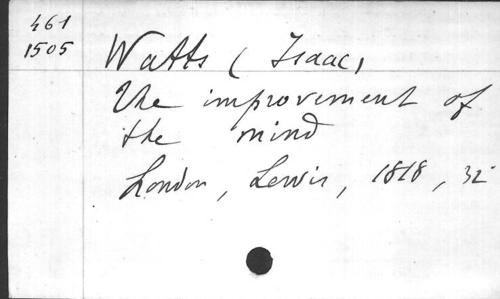 461
1505
Watts (Isaac)
The improvement of
the mind
London, Lewis, 1818, 32°